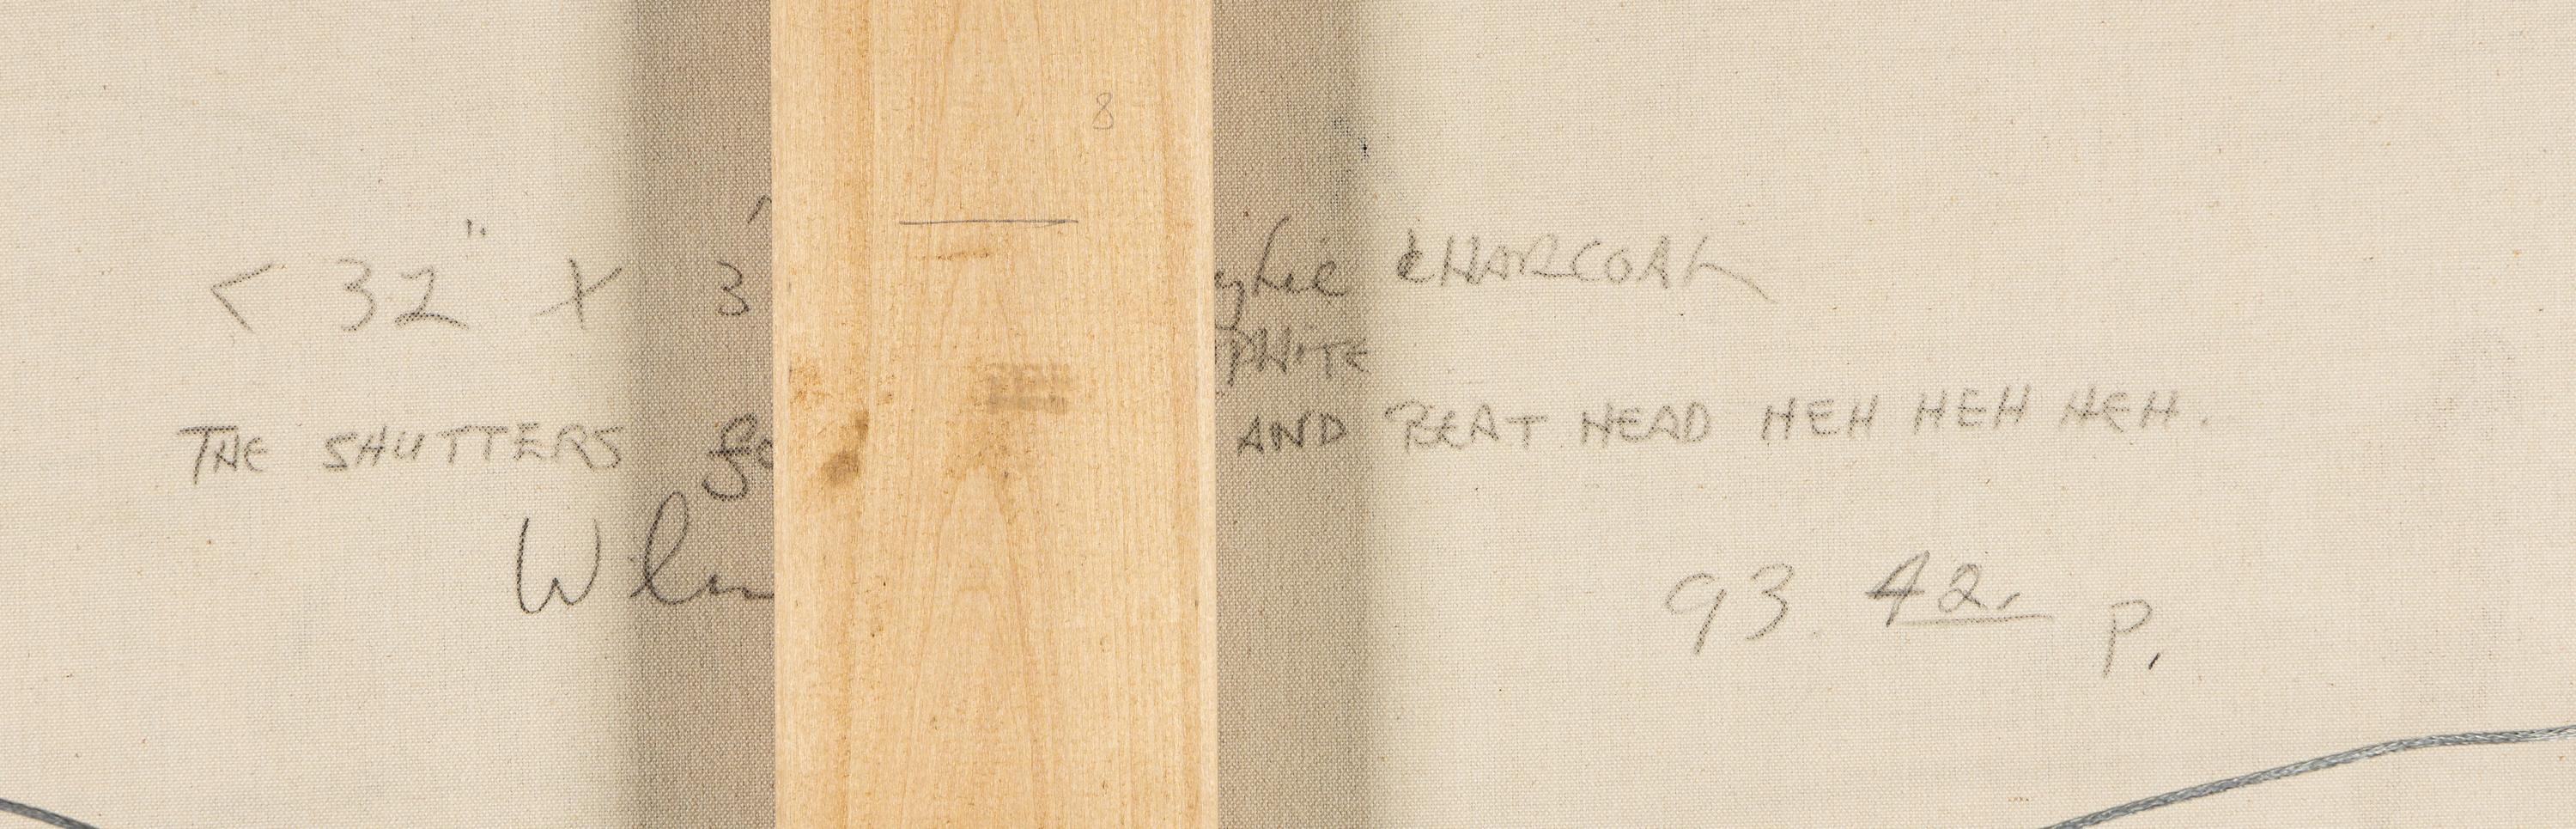 8
< 32" X 3' ylic CHARCOAL
PHITE
THE SHUTTERS go AND BEAT HEAD HEH HEH HEH.
93 42. P.